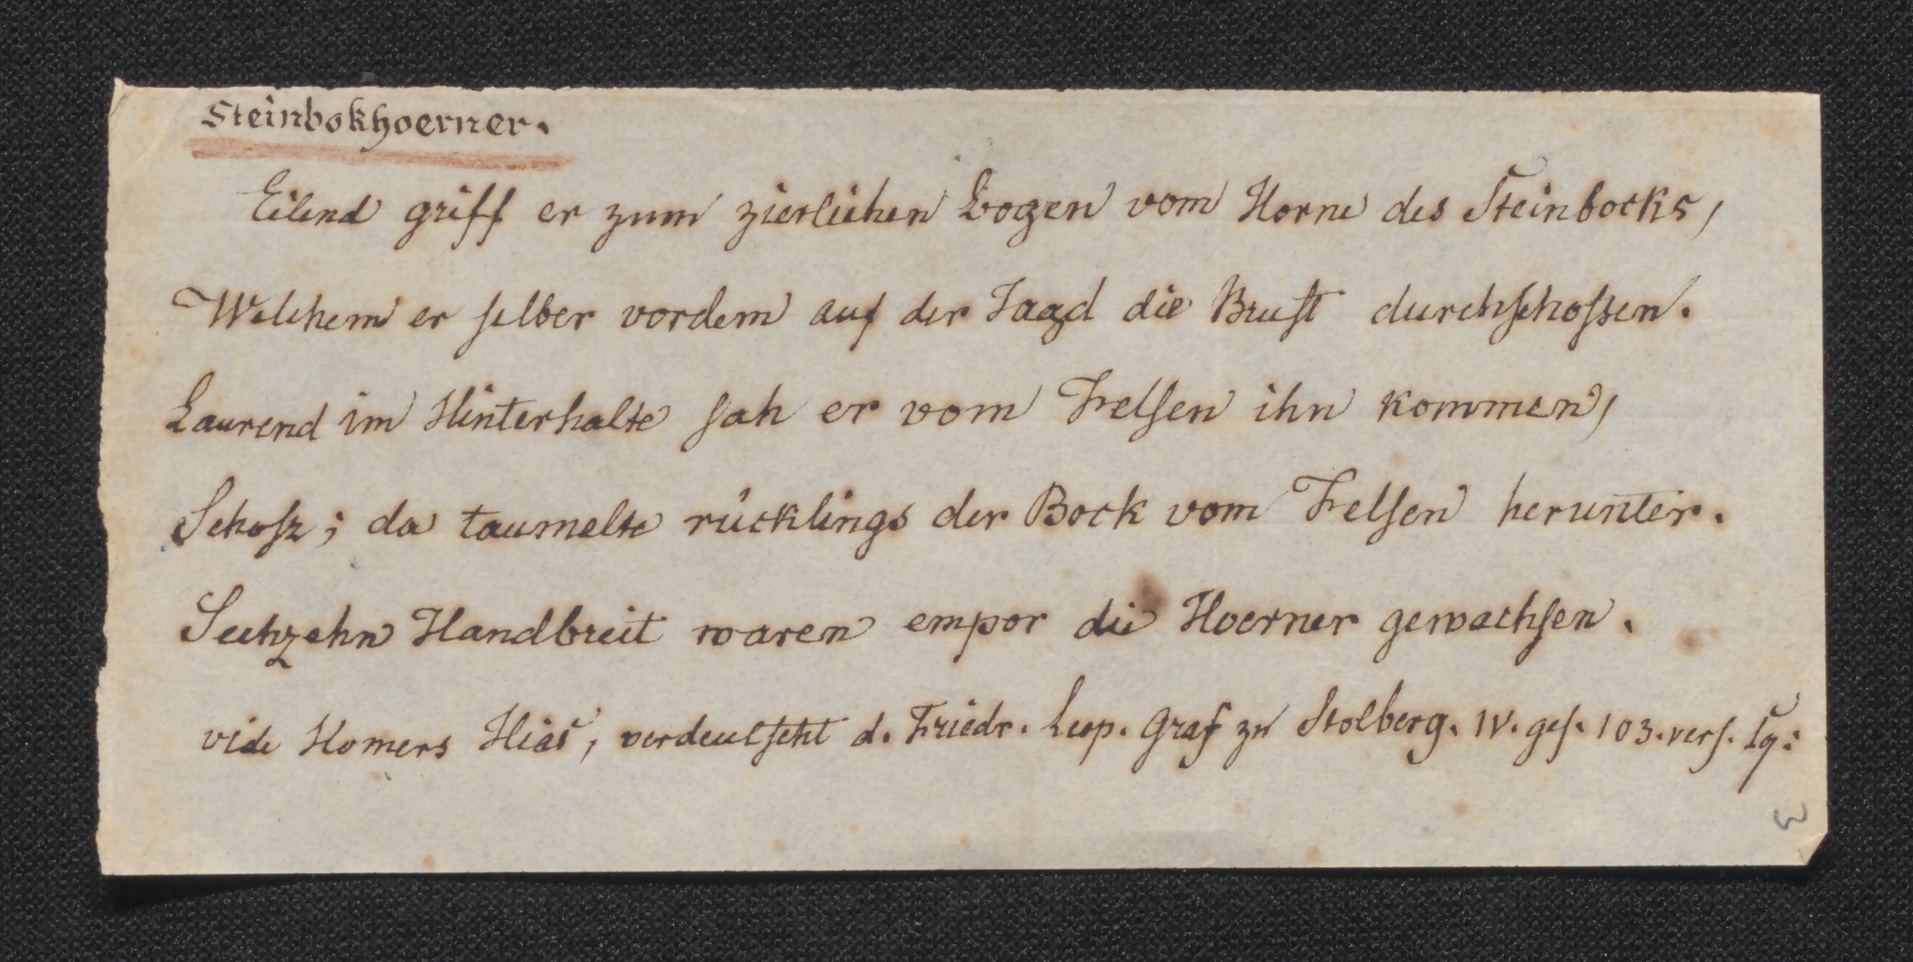 Steinbokhoerner.
Eilend griff er zum zierlichen Bogen vom Horne des Steinbocks,
Welchem er ſelber vordem auf der Jagd die Bruſt durchſchoſsen.
Laurend im Hinterhalte ſah er vom Felſen ihn kommen,
Schoſz; da taumelte rücklings der Bock vom Felſen herunter.
Sechzehn Handbreit waren empor die Hoerner gewachſen.
vide Homers Ilias, verdeutſcht d. Friedr. Leop. Graf zu Stolberg. IV. geſ. 103. verſ. Sq:
3